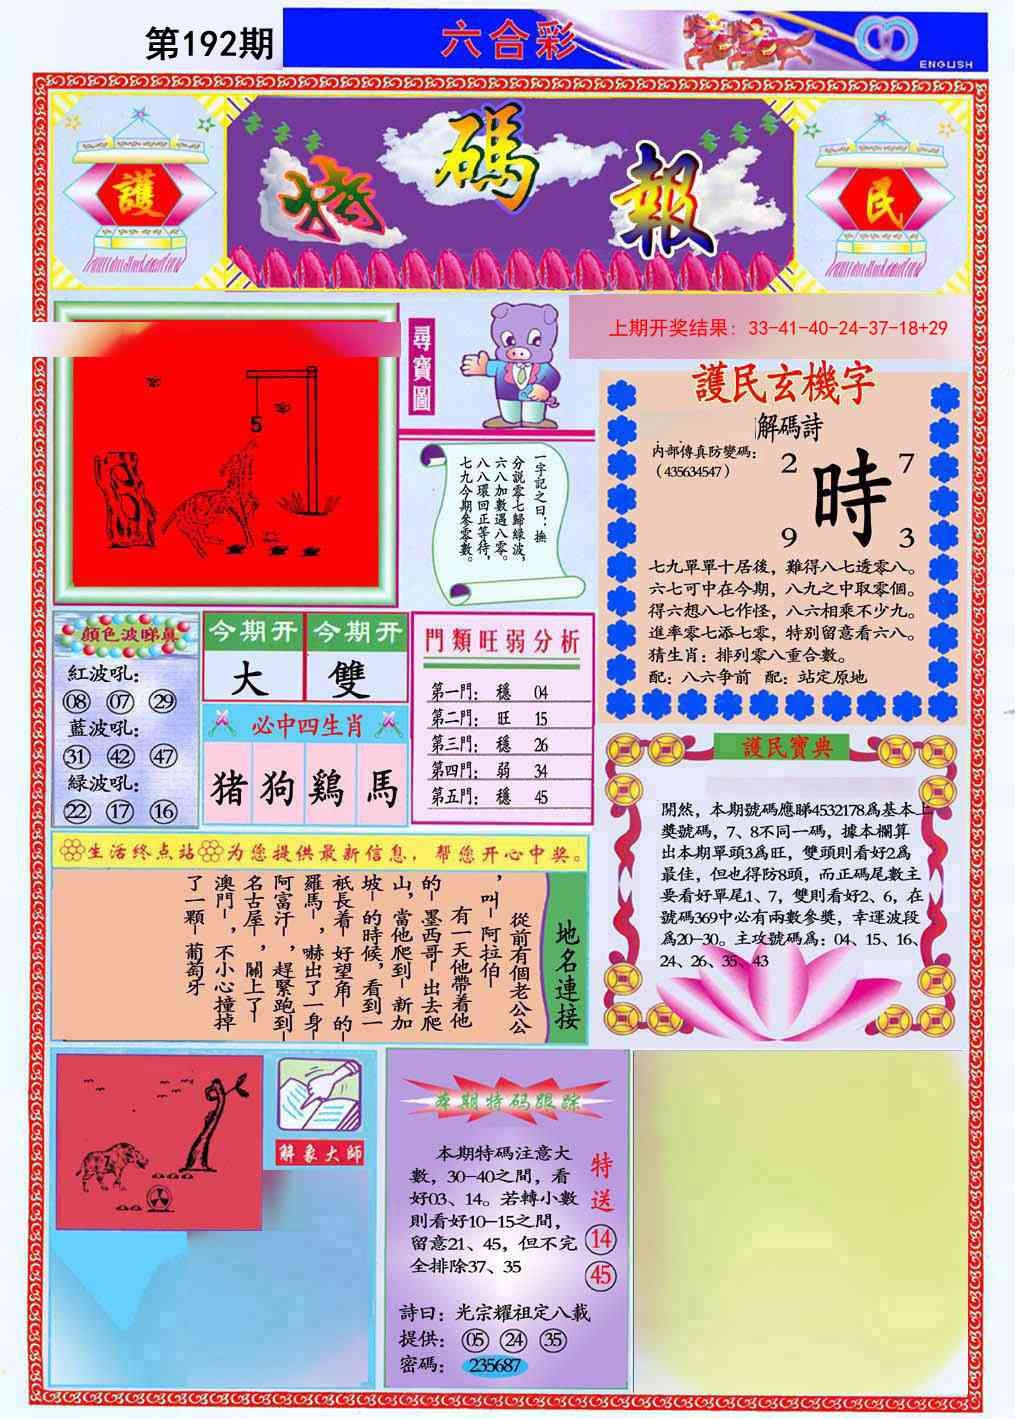 第192期
六合彩
ENGLISH
護
特碼報
民
尋寶圖
上期开奖结果：33-41-40-24-37-18+29
5
一字記之曰：撫
分説零七歸緑波，
六八加數遇八零。
八八環回正等待，
七九今期参零數。
護民玄機字
解碼詩
内部傳真防變碼：
（435634547）
2 7
時
9 3
七九單單十居後，難得八七透零八。
六七可中在今期，八九之中取零個。
得六想八七作怪，八六相乘不少九。
進率零七添七零，特别留意看六八。
猜生肖：排列零八重合數。
配：八六争前 配：站定原地
顔色波睇真
紅波吼：
08 07 29
藍波吼：
31 42 47
緑波吼：
22 17 16
今期开 今期开
大 雙
必中四生肖
猪 狗 鷄 馬
門類旺弱分析
第一門： 穩 04
第二門： 旺 15
第三門： 穩 26
第四門： 弱 34
第五門： 穩 45
護民寶典
開然，本期號碼應睇4532178爲基本上
獎號碼，7、8不同一碼，據本欄算
出本期單頭3爲旺，雙頭則看好2爲
最佳，但也得防8頭，而正碼尾數主
要看好單尾1、7，雙則看好2、6，在
號碼369中必有兩數參獎，幸運波段
爲20—30。主攻號碼爲：04、15、16、
24、26、35、43
生活终点站 为您提供最新信息，帮您开心中奖。
地名連接
從前有個老公公
，叫—阿拉伯—
有一天他帶着他
的—墨西哥—出去爬
山，當他爬到—新加
坡—的時候，看到一
衹長着—好望角—的
羅馬—，嚇出了一身—
阿富汗—，趕緊跑到—
名古屋—，關上了—
澳門—，不小心撞掉
了一顆—葡萄牙
解象大師
本期特码跟踪
本期特码注意大
數，30-40之間，看
好03、14。若轉小數
則看好10—15之間，
留意21、45，但不完
全排除37、35
特送
14
45
詩曰：光宗耀祖定八載
提供： 05 24 35
密碼： 235687